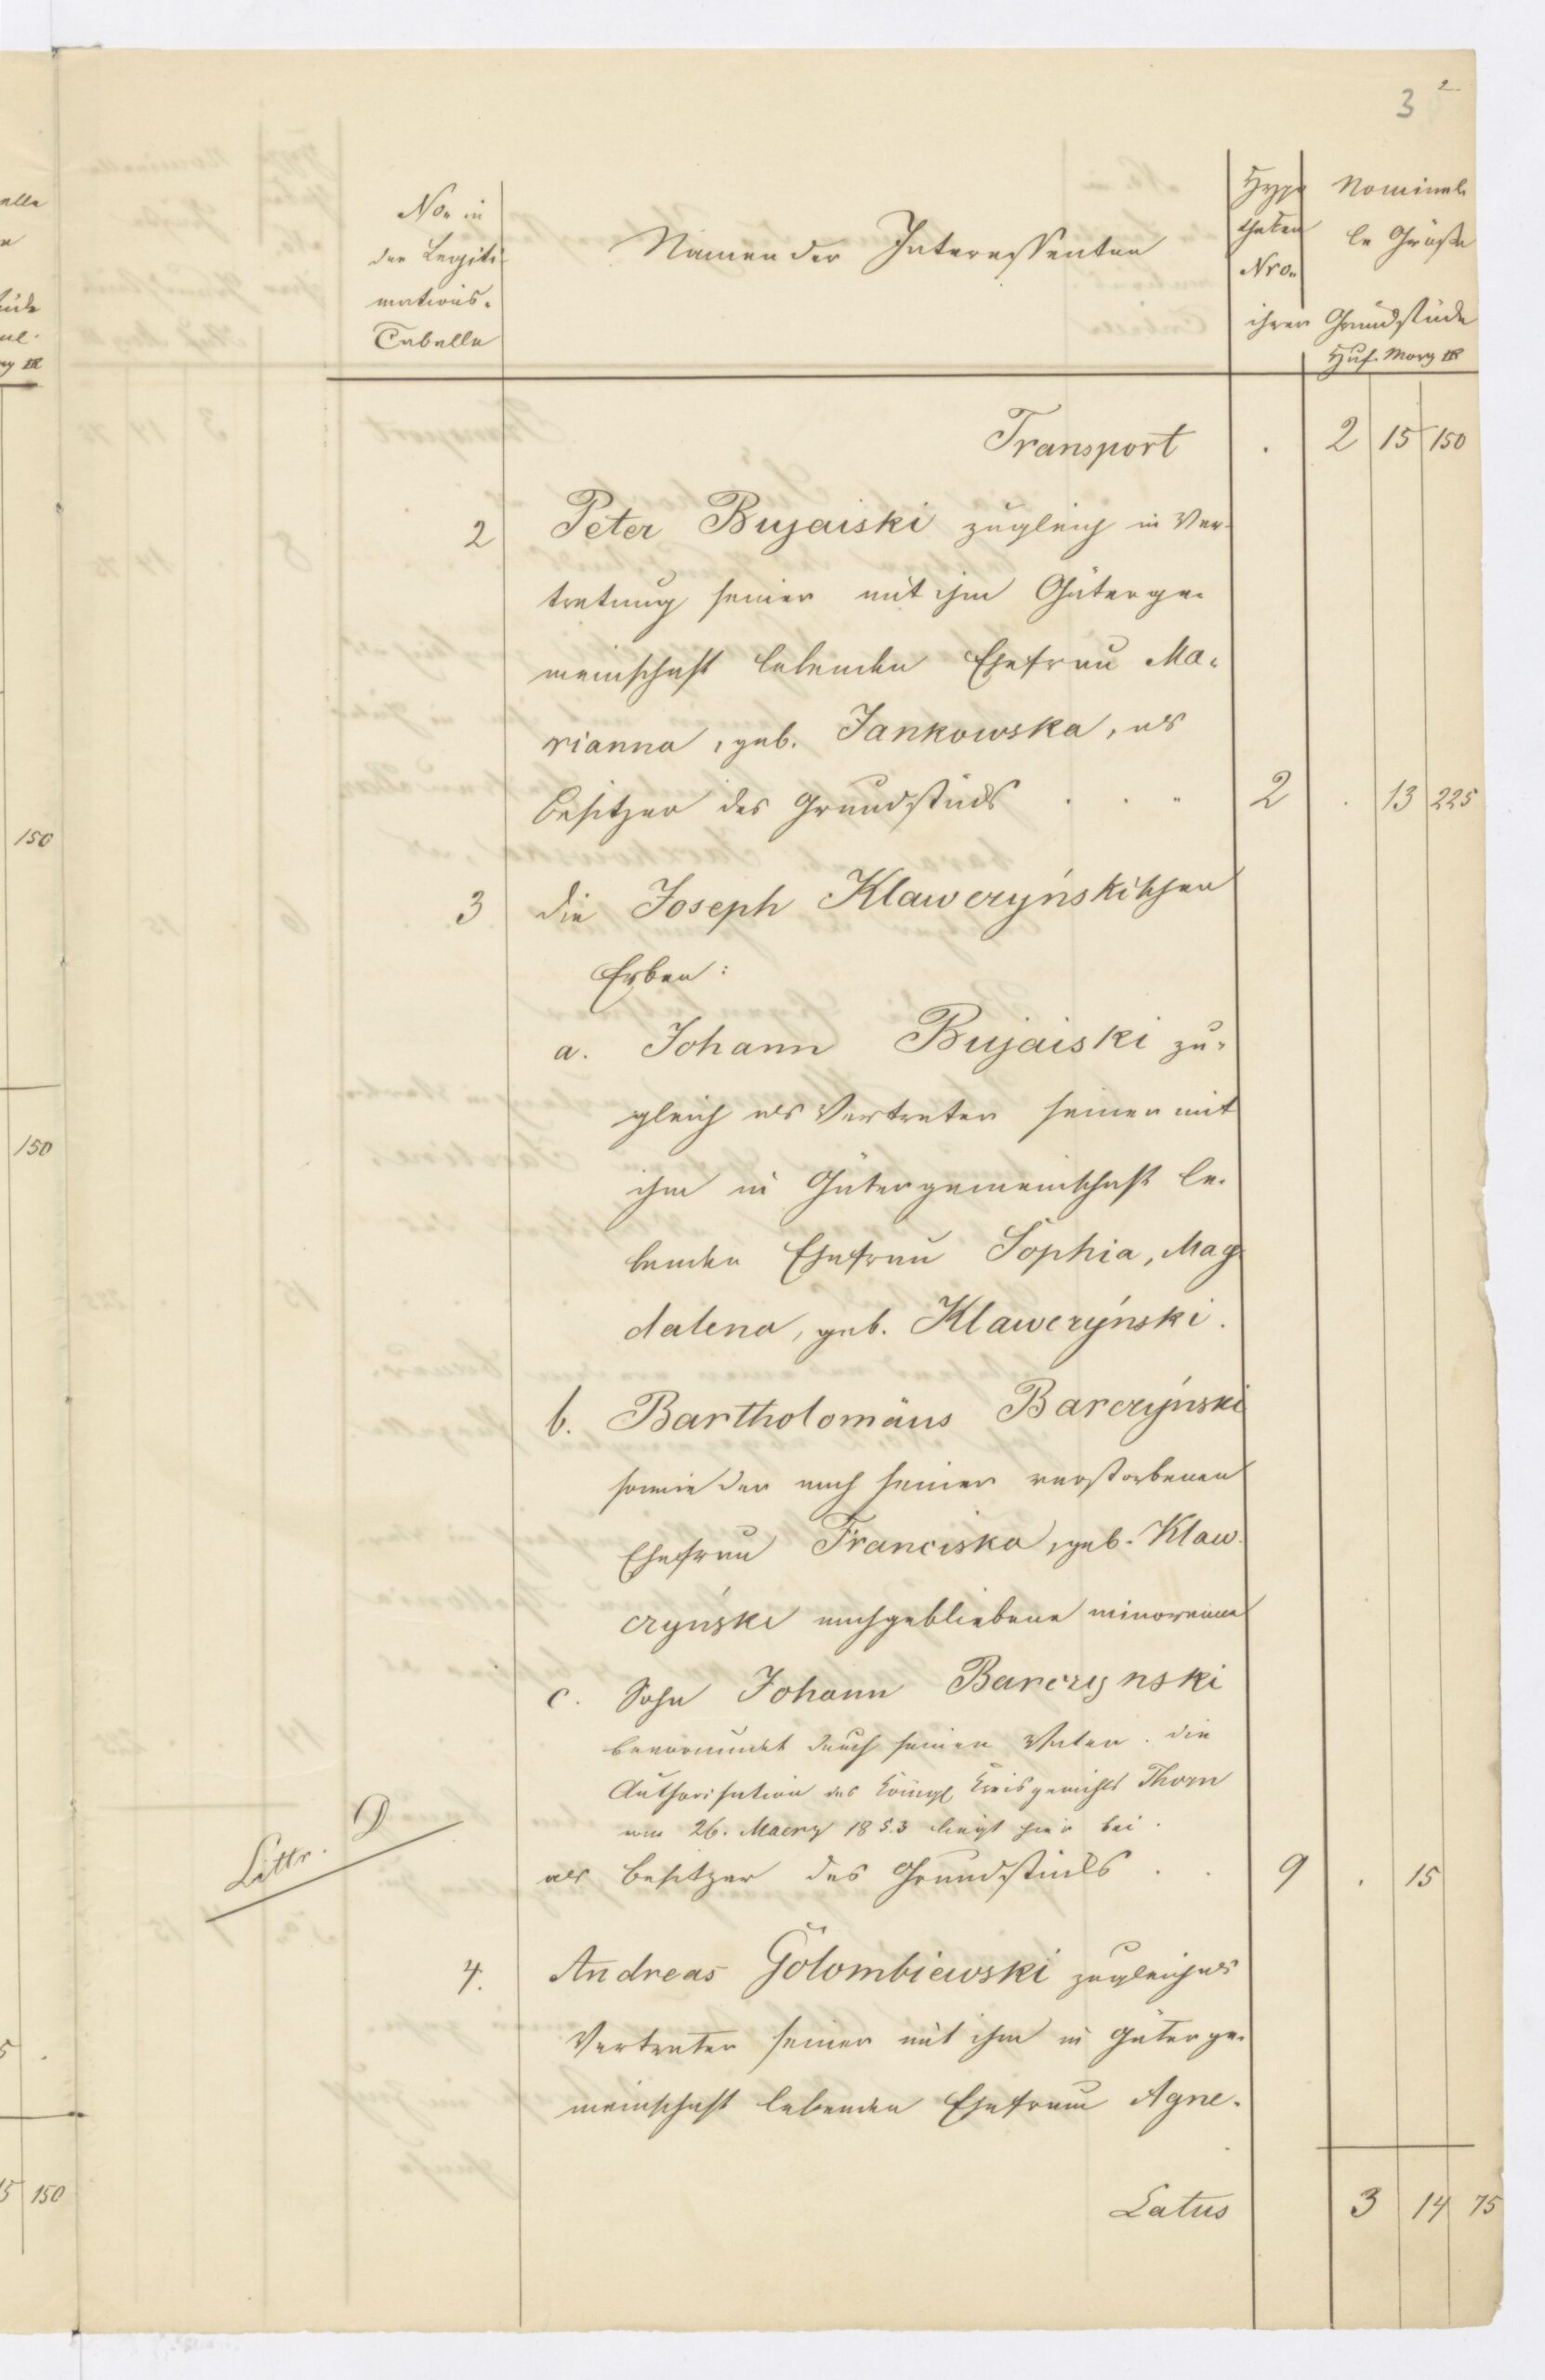 3 2
No. in
der Legiti-
mations-
Tabelle
Namen der Interessenten
Hypo
theken
Nro.
Nominel-
le Größe
ihrer Grundstücke
Huf. Morg □R
Transport . 2 15 150
2 Peter Bujaiski zugleich in Ver-
tretung seiner mit ihm Güterge-
meinschaft lebenden Ehefrau Ma-
rianna, geb. Jankowska, als
Besitzer des Grundstücks . . . 2 . 13 225
3 die Joseph Klawczyńskischen
Erben:
a. Johann Bujaiski zu-
gleich als Vertreter seiner mit
ihm in Gütergemeinschaft le-
benden Ehefrau Sophia, Mag
dalena, geb. Klawczyński.
b. Bartholomäus Barczyński
sowie der nach seiner verstorbenen
Ehefrau Franciska, geb. Klaw-
czyński nachgebliebene minorenne
c. Sohn Johann Barczynski
bevormundet durch seinen Vater. die
Authorisation des Königl Kreisgerichts Thorn
vom 26. Maerz 1853 liegt hier bei.
als Besitzer des Grundstücks . . 9 . 15
Littr. D
4. Andreas Golombiewski zugleich als
Vertreter seiner mit ihm in Güterge-
meinschaft lebenden Ehefrau Agne-
Latus 3 14 75
150
150
15 150